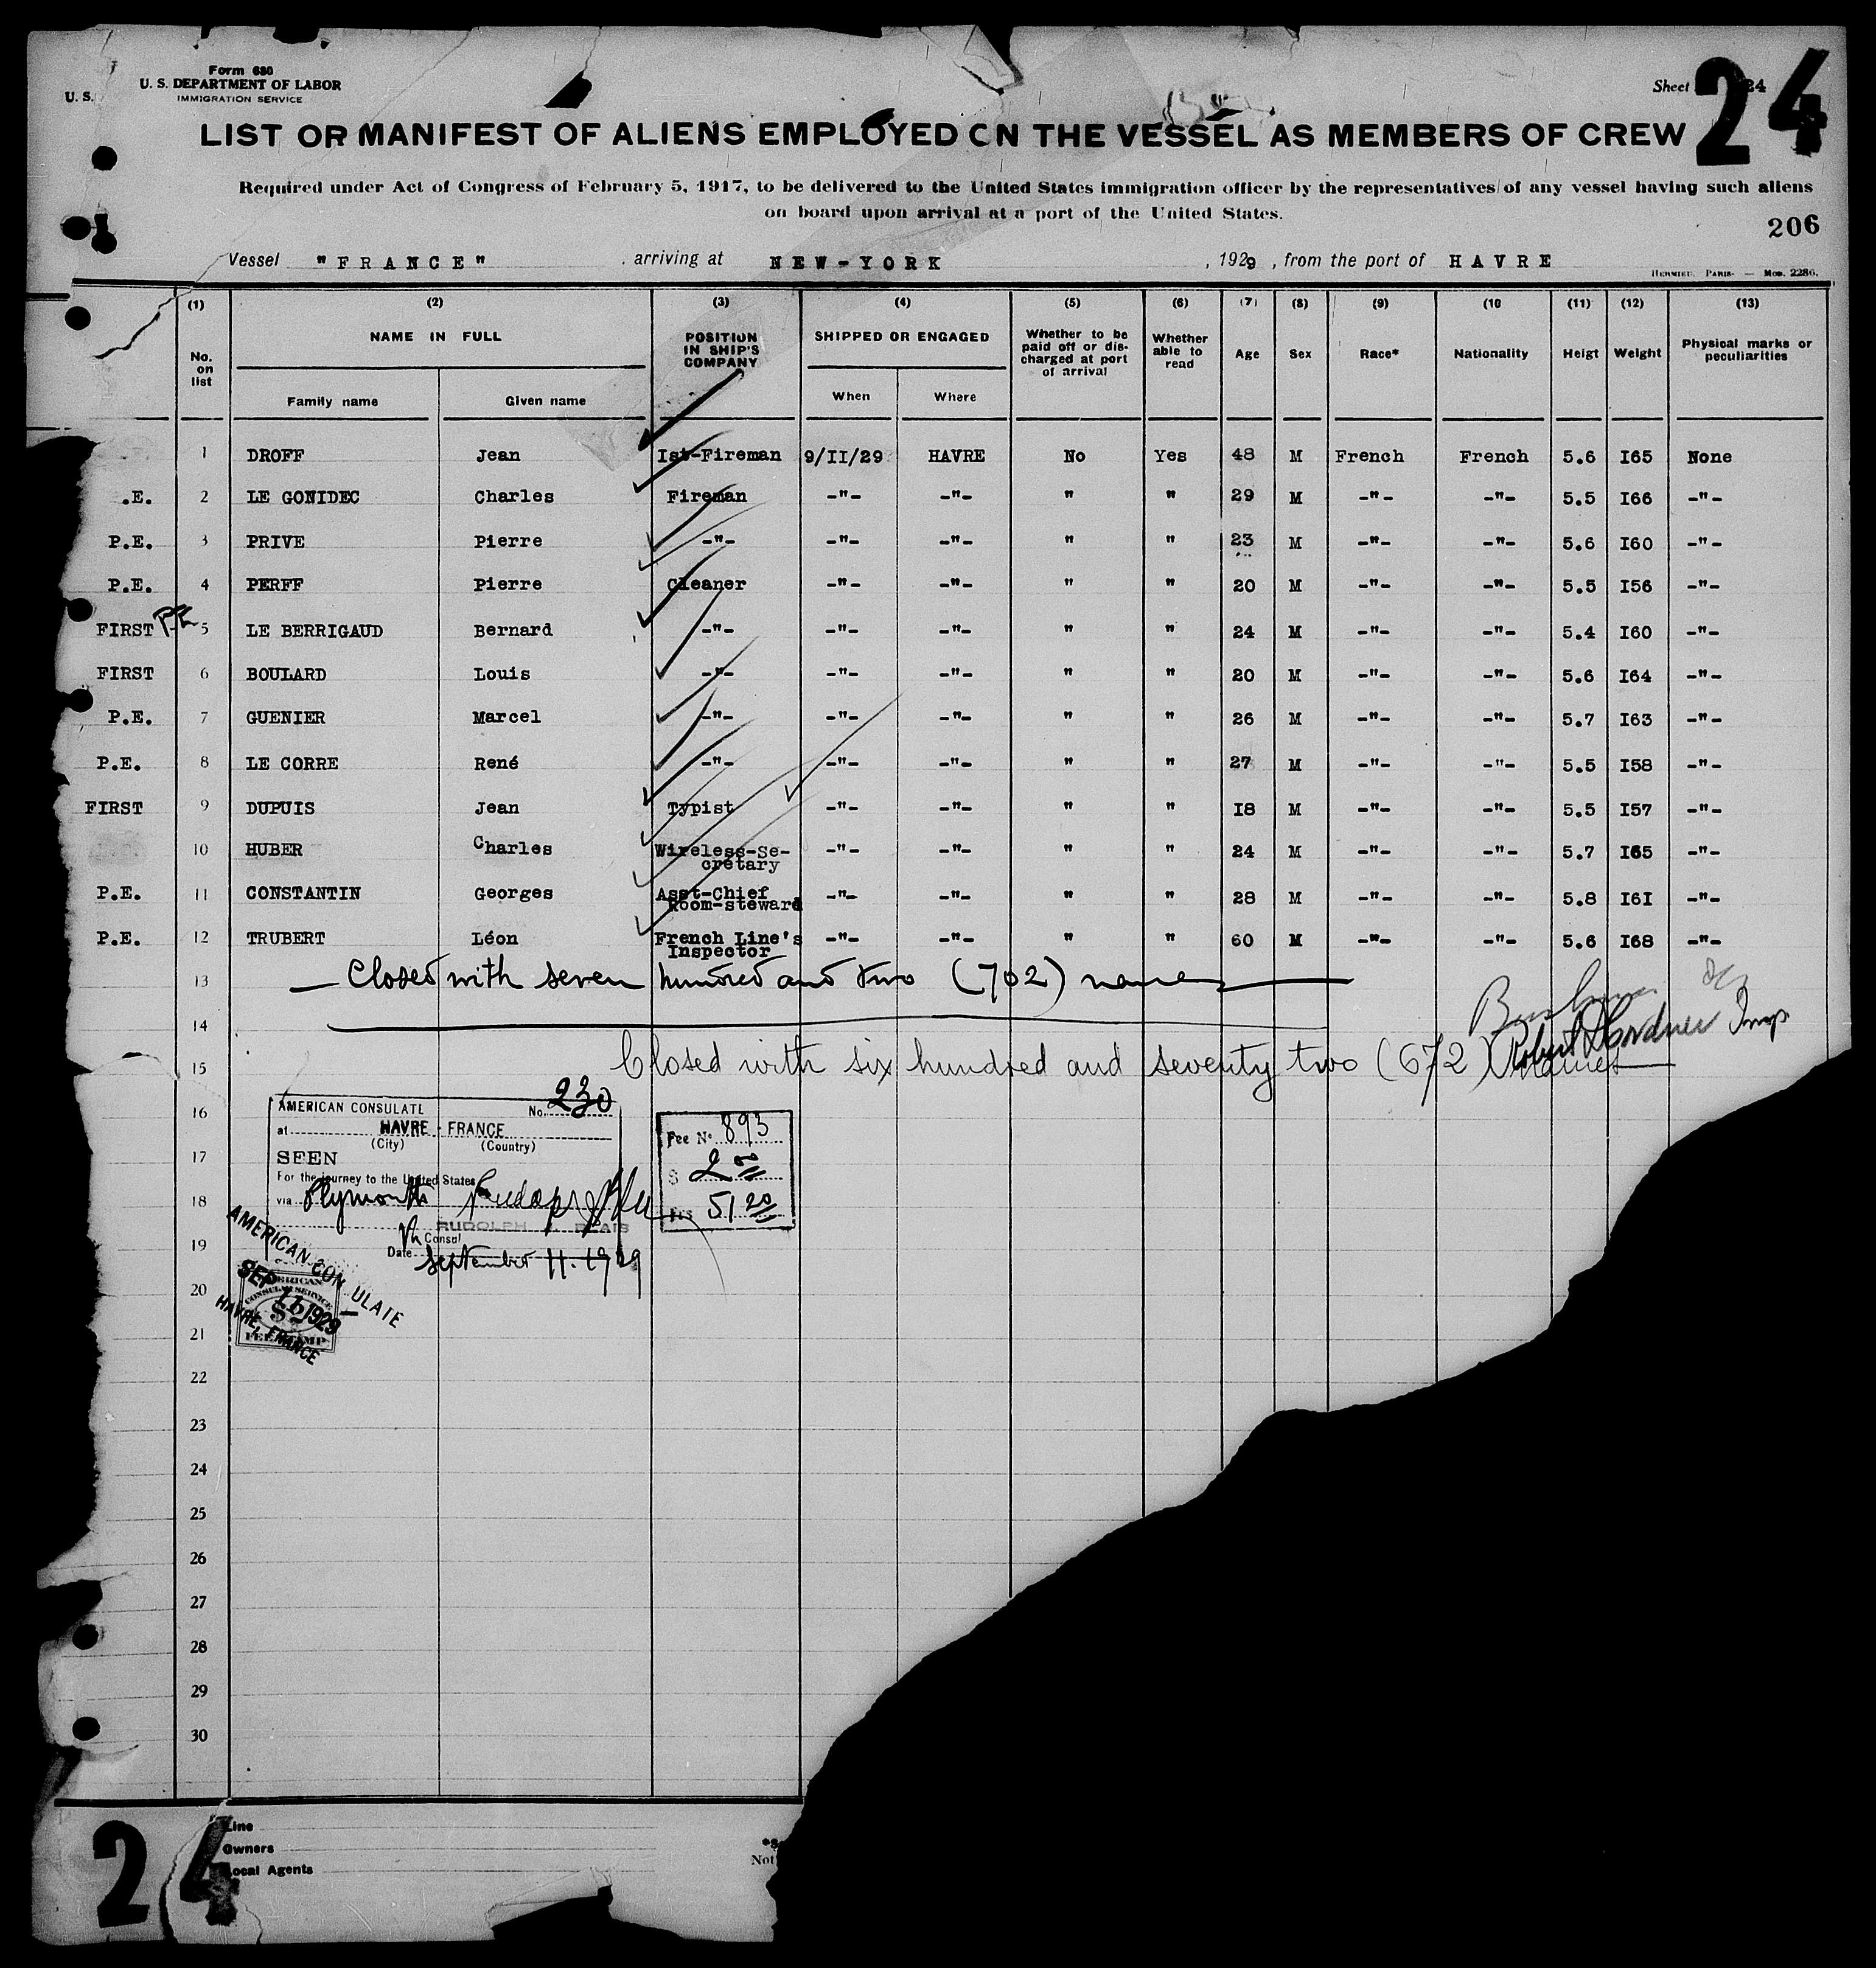 Form 680
U. S. DEPARTMENT OF LABOR
IMMIGRATION SERVICE
U. S.
Sheet 24
24
LIST OR MANIFEST OF ALIENS EMPLOYED ON THE VESSEL AS MEMBERS OF CREW
Required under Act of Congress of February 5, 1917, to be delivered to the United States immigration officer by the representatives of any vessel having such aliens
on board upon arrival at a port of the United States.
206
Vessel "FRANCE" , arriving at NEW-YORK , 1929 , from the port of HAVRE
PARIS- — Mod. 2286.
(1) (2) (3) (4) (5) (6) (7) (8) (9) (10 (11) (12) (13)
No. on list NAME IN FULL POSITION IN SHIP'S COMPANY SHIPPED OR ENGAGED Whether to be paid off or dis-charged at port of arrival Whether able to read Age Sex Race* Nationality Heigt Weight Physical marks or peculiarities
Family name Given name When Where
1 DROFF Jean Ist-Fireman 9/II/29 HAVRE No Yes 48 M French French 5.6 I65 None
.E. 2 LE GONIDEC Charles Fireman -"- -"- " " 29 M -"- -"- 5.5 I66 -"-
P.E. 3 PRIVE Pierre -"- -"- -"- " " 23 M -"- -"- 5.6 I60 -"-
P.E. 4 PERFF Pierre Cleaner -"- -"- " " 20 M -"- -"- 5.5 I56 -"-
FIRST P.E 5 LE BERRIGAUD Bernard -"- -"- -"- " " 24 M -"- -"- 5.4 I60 -"-
FIRST 6 BOULARD Louis -"- -"- -"- " " 20 M -"- -"- 5.6 I64 -"-
P.E. 7 GUENIER Marcel -"- -"- -"- " " 26 M -"- -"- 5.7 I63 -"-
P.E. 8 LE CORRE René -"- -"- -"- " " 27 M -"- -"- 5.5 I58 -"-
FIRST 9 DUPUIS Jean Typist -"- -"- " " I8 M -"- -"- 5.5 I57 -"-
10 HUBER Charles Wireless-Se-cretary -"- -"- " " 24 M -"- -"- 5.7 I65 -"-
P.E. 11 CONSTANTIN Georges Asst-Chief Room-steward -"- -"- " " 28 M -"- -"- 5.8 I6I -"-
P.E. 12 TRUBERT Léon French Line's Inspector -"- -"- " " 60 M -"- -"- 5.6 I68 -"-
13 Closed with seven hundred and two (702) names
14
Robert Gardner Insp
15 Closed with six hundred and seventy two (672) names
16
AMERICAN CONSULATE No. 230
at HAVRE - FRANCE
(City) (Country)
SEEN
For the journey to the United States
via Plymouth
RUDOLPH BLAIS
Consul
Date September 11. 1929
Fee No 893
$ 2 00
Frs 51 20
17
18
19
AMERICAN CON ULATE
SEP 11 1929
HAVRE, FRANCE
AMERICAN
CONSULAR SERVICE
$2
FEE STAMP
20
21
22
23
24
25
26
27
28
29
30
24
Line
Owners
Local Agents
Not